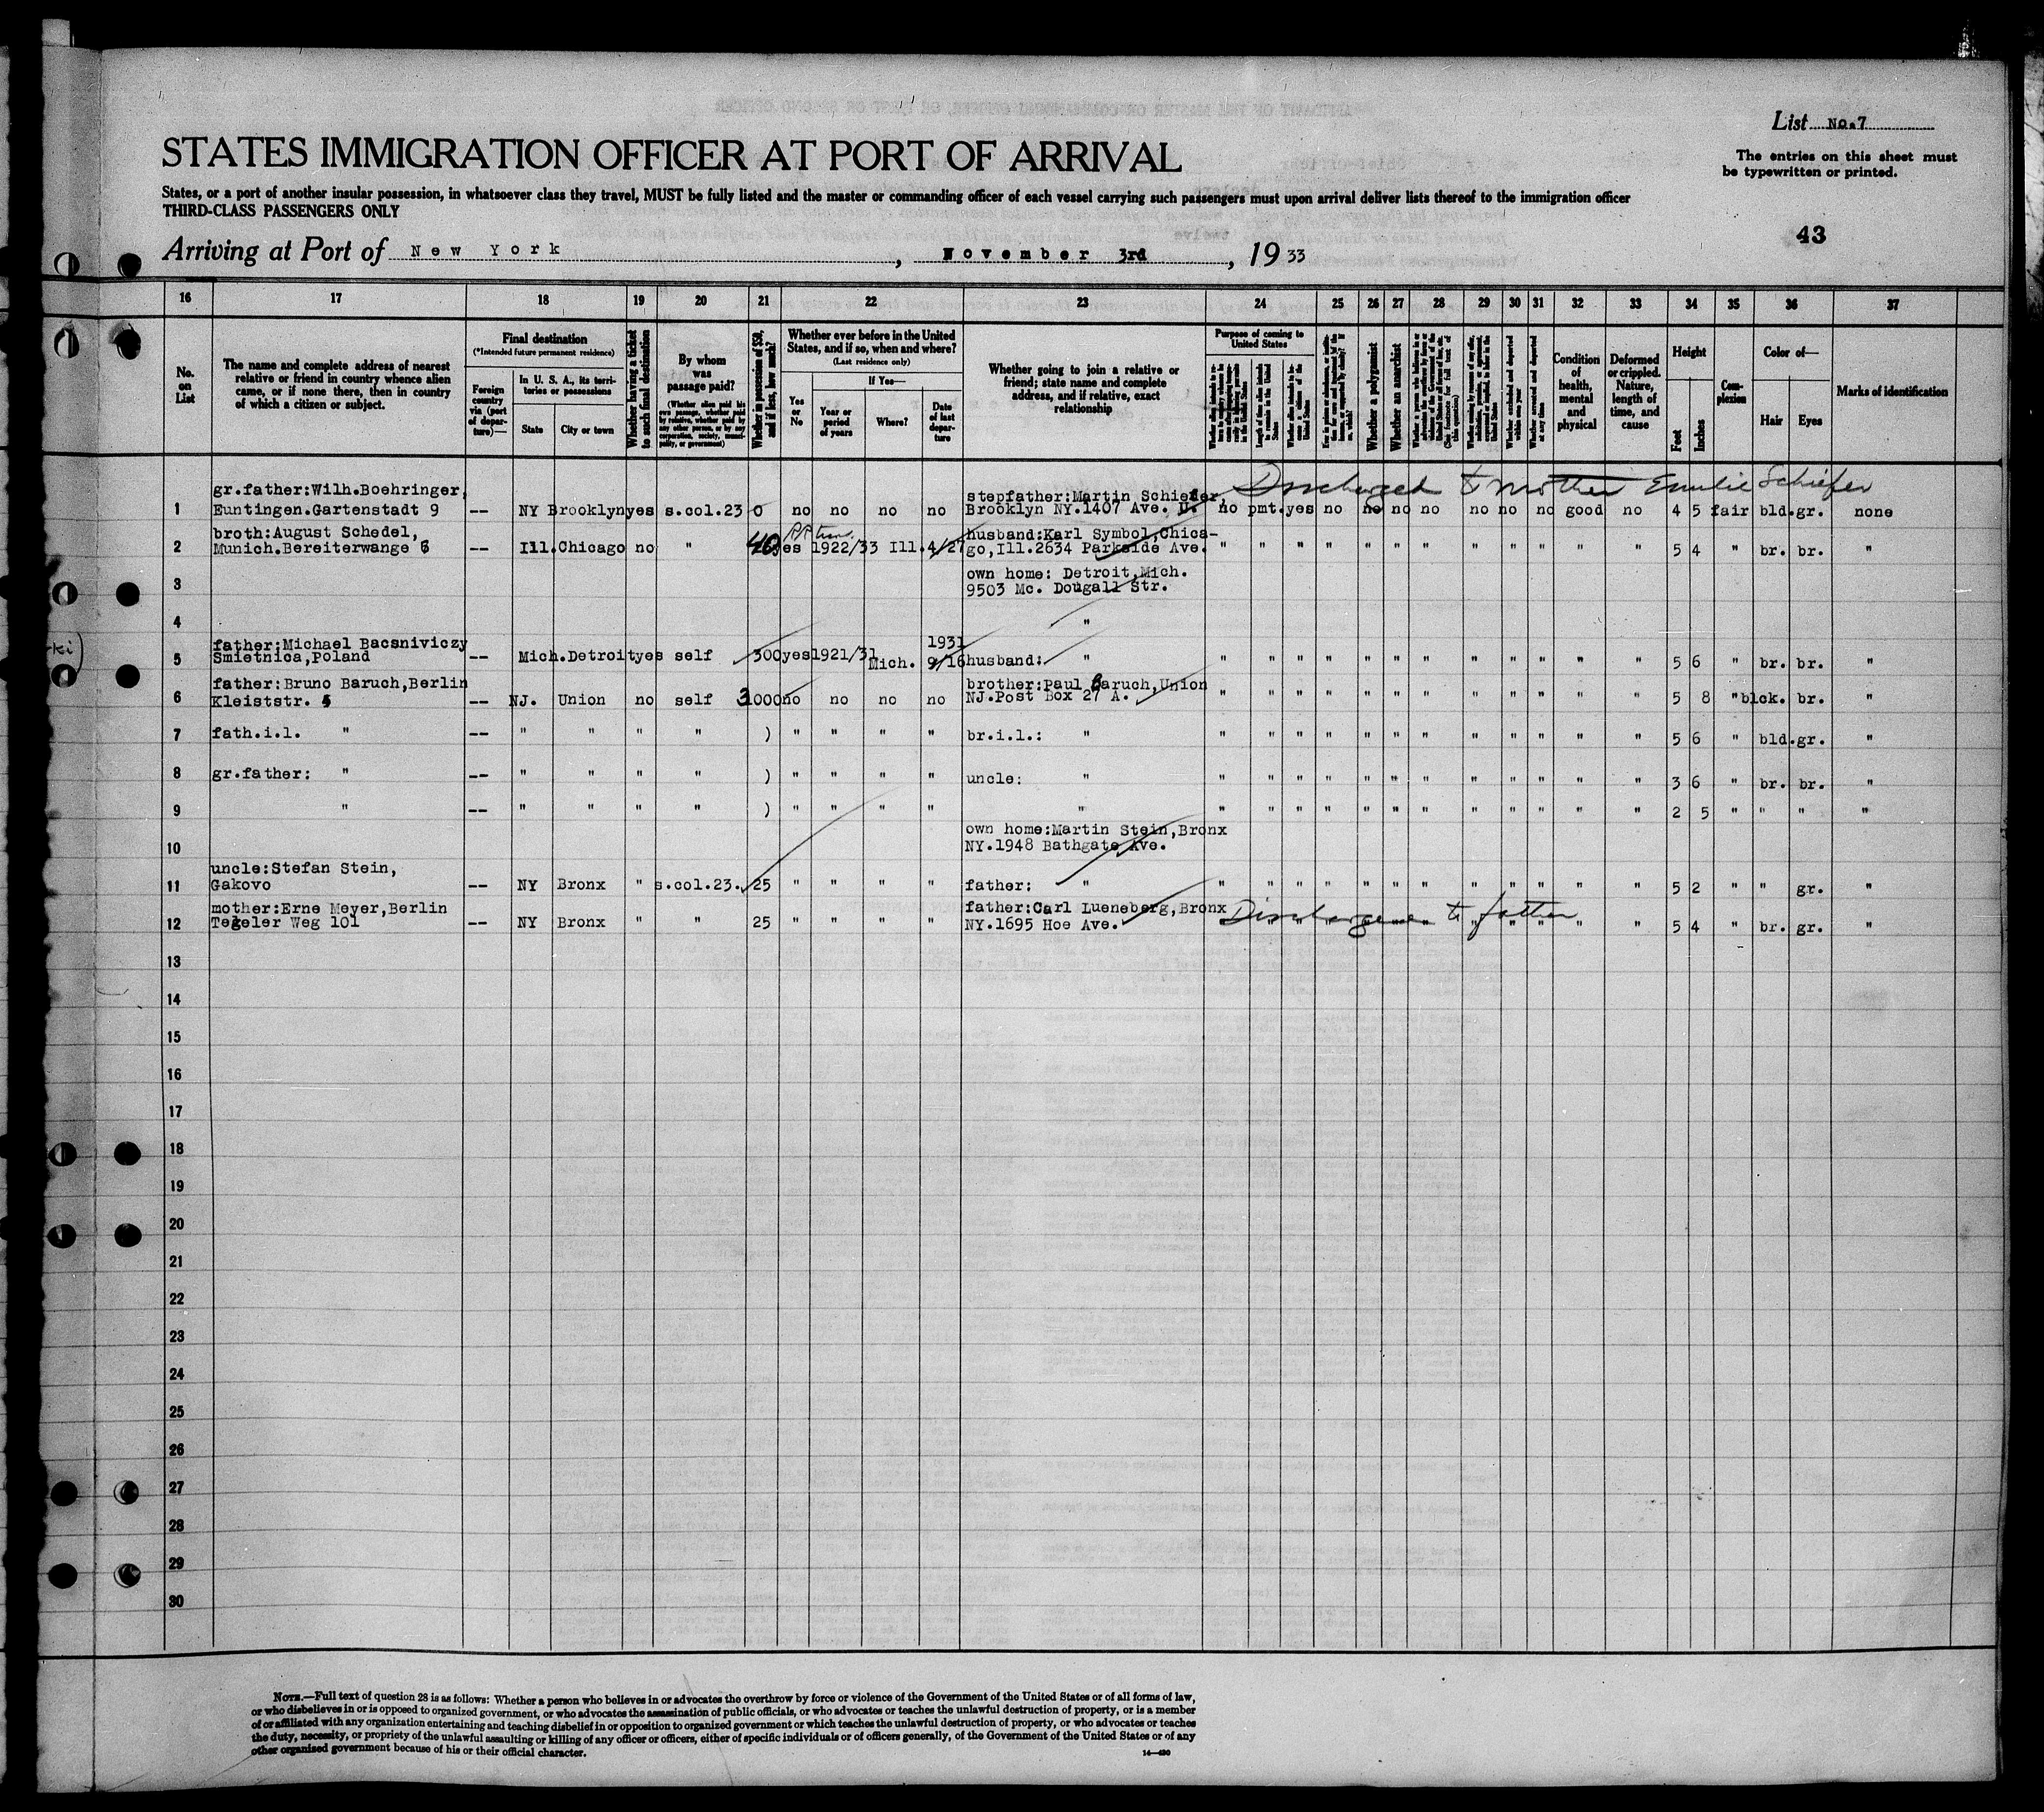 List No.7
The entries on this sheet must
be typewritten or printed.
STATES IMMIGRATION OFFICER AT PORT OF ARRIVAL
States, or a port of another insular possession, in whatsoever class they travel, MUST be fully listed and the master or commanding officer of each vessel carrying such passengers must upon arrival deliver lists thereof to the immigration officer
THIRD-CLASS PASSENGERS ONLY
43
Arriving at Port of New York, November 3rd, 19 33
16 17 18 19 20 21 22 23 24 25 26 27 28 29 30 31 32 33 34 35 36 37
No. on List
The name and complete address of nearest
relative or friend in country whence alien
came, or if none there, then in country
of which a citizen or subject.
Final destination
(*Intended future permanent residence)
Foreign country via (port of departure)—
In U. S. A., its territories or possessions
State
City or town
Whether having a ticket to such final destination
By whom was passage paid?
(Whether alien paid his own passage, whether paid by relative, whether paid by any other person, or by any corporation, society, municipality, or government)
Whether in possession of $50, and if less, how much?
Whether ever before in the United
States, and if so, when and where?
(Last residence only)
If Yes—
Yes or No
Year or period of years
Where?
Date of last departure
Whether going to join a relative or
friend; state name and complete
address, and if relative, exact
relationship
Purpose of coming to United States
Length of time alien intends to remain in the United States
Whether alien intends to become a citizen of the United States
Whether a polygamist
Whether an anarchist
Whether excluded and deported within one year
Whether arrested and deported at any time
Condition of health, mental and physical
Deformed or crippled. Nature, length of time, and cause
Height
Feet
Inches
Complexion
Color of—
Hair
Eyes
Marks of identification
Discharged to mother Emilie Schiefer
gr.father:Wilh.Boehringer, stepfather:Martin Schiefer,
1 Euntingen.Gartenstadt 9 -- NY Brooklyn yes s.col.23 0 no no no no Brooklyn NY.1407 Ave. U. no pmt. yes no no no no no no no good no 4 5 fair bld. gr. none
broth:August Schedel, husband:Karl Symbol,Chica-
2 Munich.Bereiterwange 6 -- Ill. Chicago no " 40 yes 1922/33 Ill. 4/27 go,Ill.2634 Parkside Ave. " " " " " " " " " " " " 5 4 " br. br. "
own home: Detroit,Mich.
3 9503 Mc. Dougall Str.
4 "
father:Michael Bacsniviczy 1931
5 Smietnica,Poland -- Mich. Detroit yes self 300 yes 1921/31 Mich. 9/16 husband: " " " " " " " " " " " " " 5 6 " br. br. "
father:Bruno Baruch,Berlin brother:Paul Baruch,Union
6 Kleiststr. 5 -- NJ. Union no self 3000 no no no no NJ.Post Box 27 A. " " " " " " " " " " " " 5 8 " blck. br. "
7 fath.i.l. " -- " " " " ) " " " " br.i.l.: " " " " " " " " " " " " " 5 6 " bld. gr. "
8 gr.father: " -- " " " " ) " " " " uncle: " " " " " " " " " " " " " 3 6 " br. br. "
9 " -- " " " " ) " " " " " " " " " " " " " " " " " 2 5 " " " "
own home:Martin Stein,Bronx
10 NY.1948 Bathgate Ave.
uncle:Stefan Stein,
11 Gakovo -- NY Bronx " s.col.23. 25 " " " " father: " " " " " " " " " " " " " 5 2 " " gr. "
mother:Erne Meyer,Berlin father:Carl Lueneberg,Bronx Discharged to father
12 Tegeler Weg 101 -- NY Bronx " " 25 " " " " NY.1695 Hoe Ave. " " " " " " " " " " " 5 4 " br. gr. "
13
14
15
16
17
18
19
20
21
22
23
24
25
26
27
28
29
30
NOTE.—Full text of question 28 is as follows: Whether a person who believes in or advocates the overthrow by force or violence of the Government of the United States or of all forms of law,
or who disbelieves in or is opposed to organized government, or who advocates the assassination of public officials, or who advocates or teaches the unlawful destruction of property, or is a member
of or affiliated with any organization entertaining and teaching disbelief in or opposition to organized government or which teaches the unlawful destruction of property, or who advocates or teaches
the duty, necessity, or propriety of the unlawful assaulting or killing of any officer or officers, either of specific individuals or of officers generally, of the Government of the United States or of any
other organized government because of his or their official character.
14—430